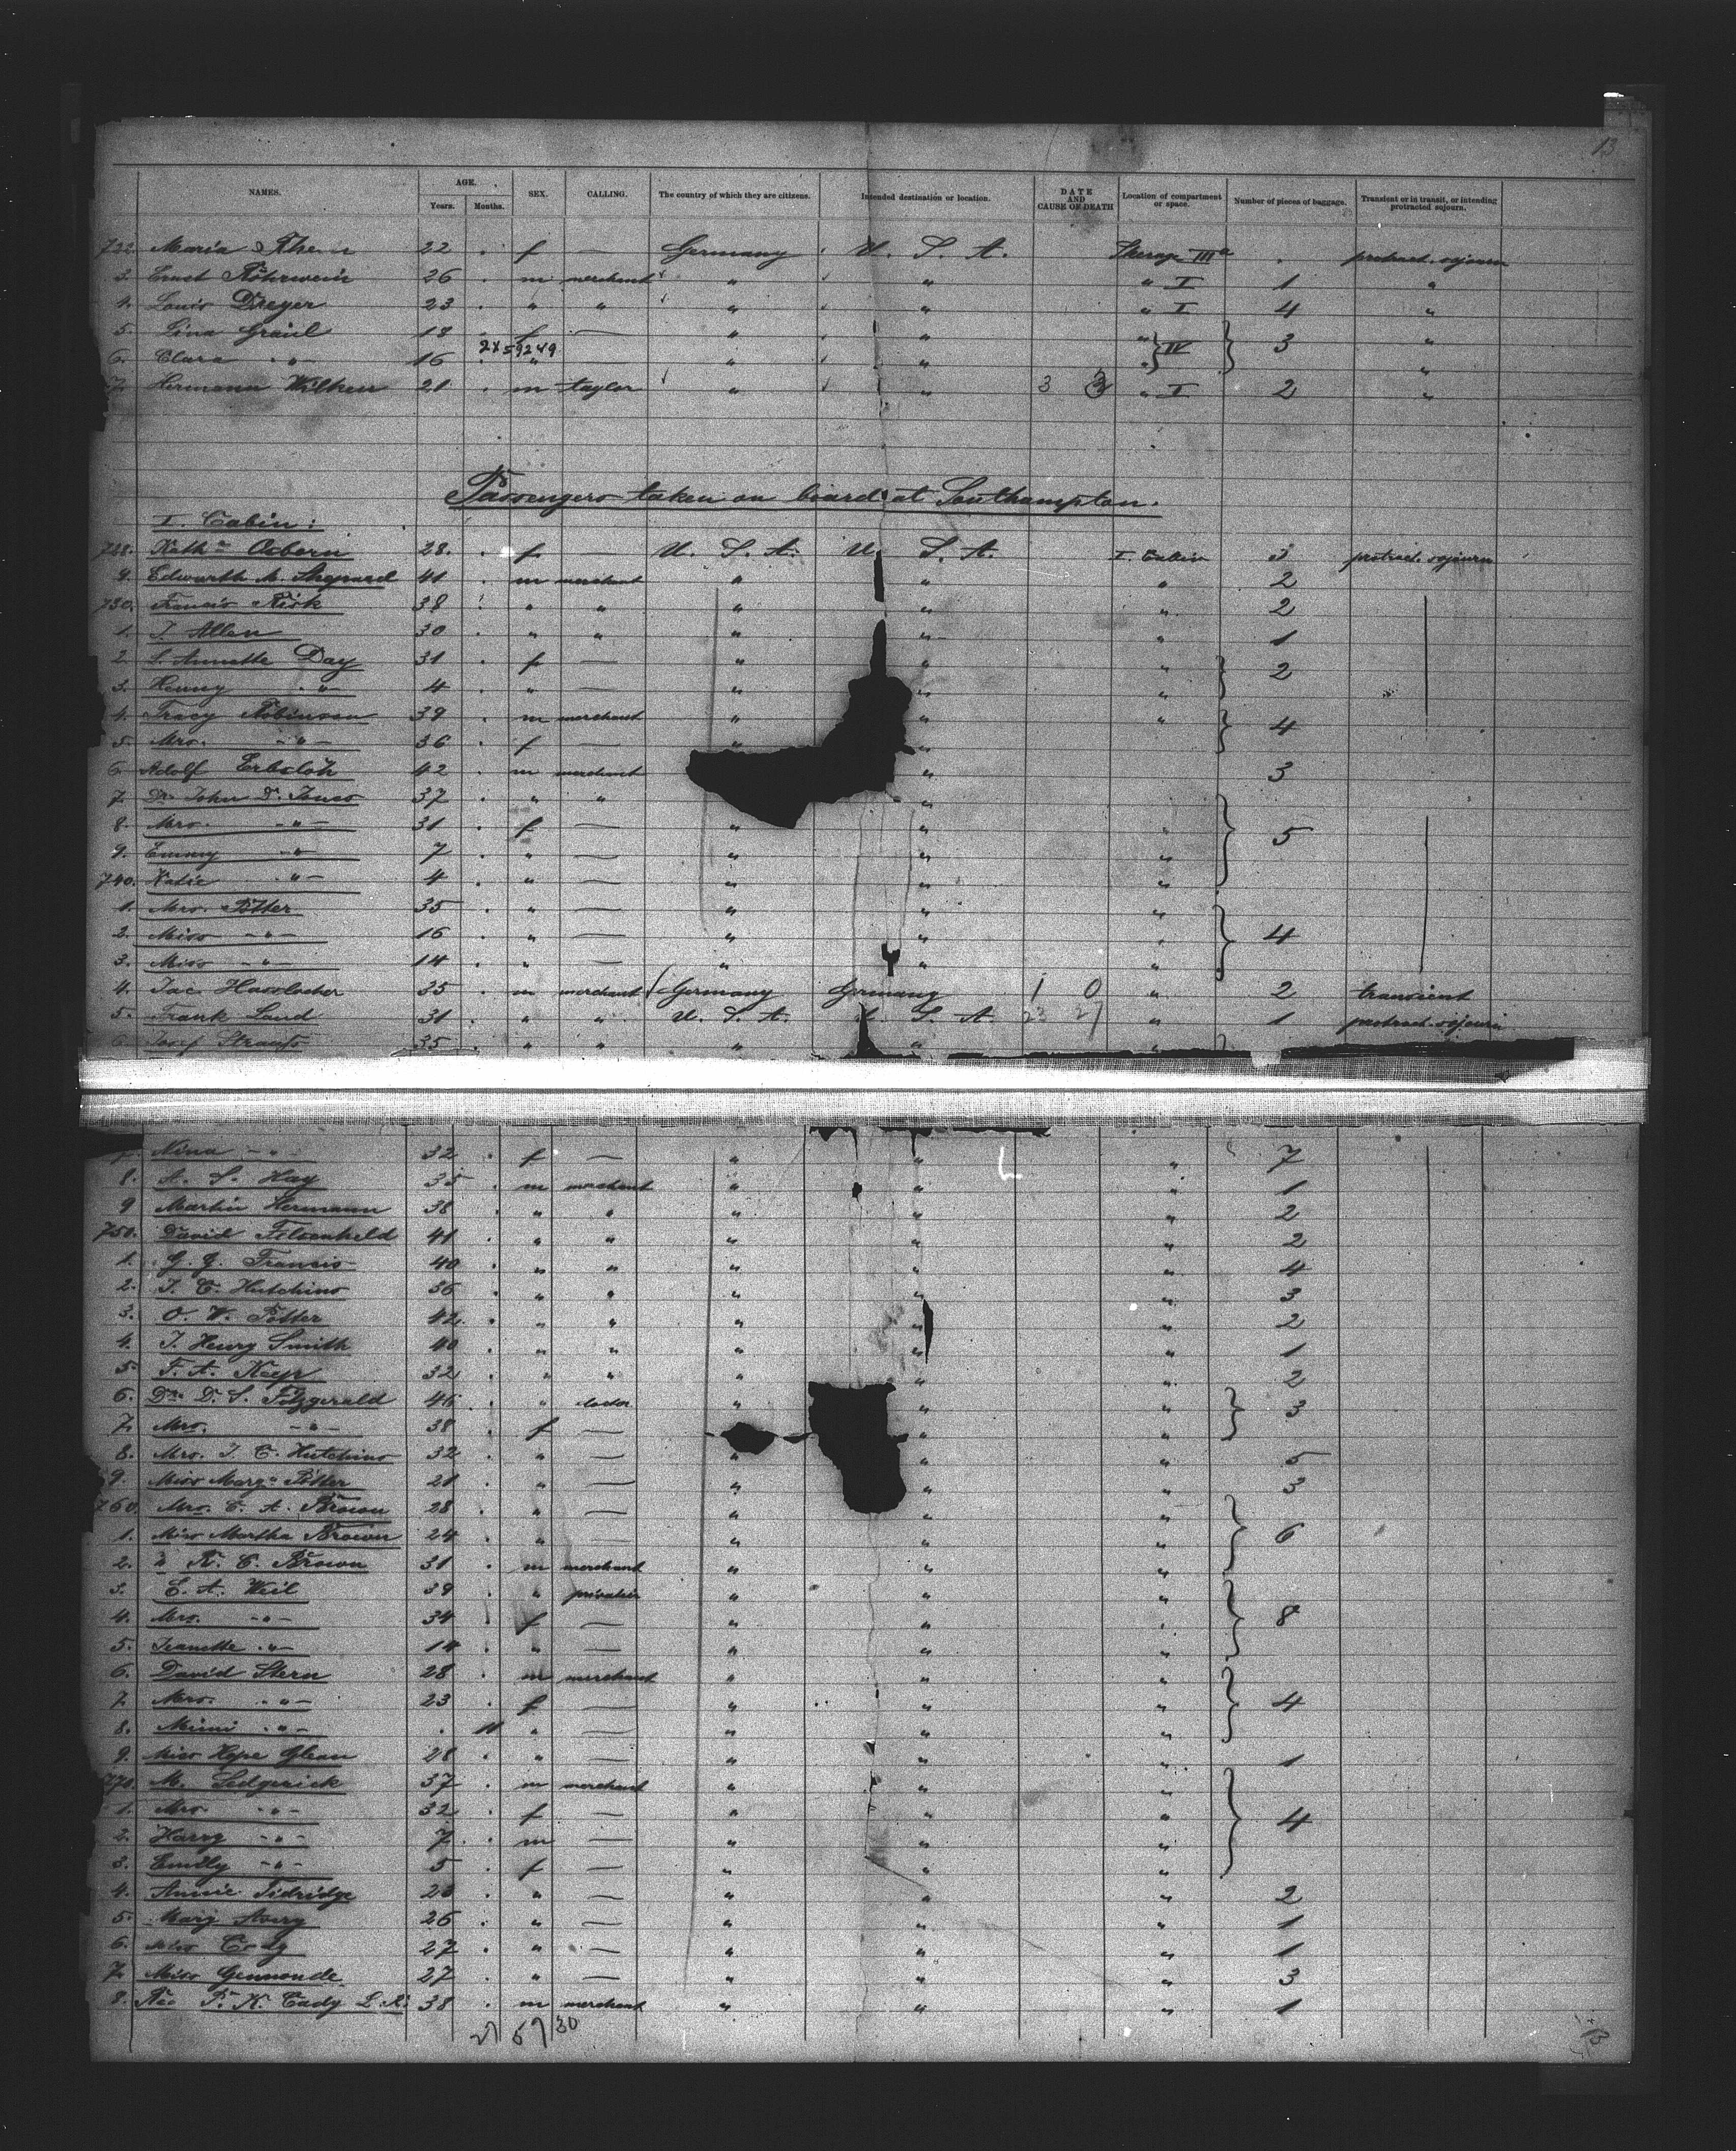 13
NAMES. AGE. SEX. CALLING. The country of which they are citizens. Intended destination or location. DATE AND CAUSE OF DEATH Location of compartment or space. Number of pieces of baggage. Transient or in transit, or intending protracted sojourn.
Years. Months.
722. Maria 22 . f — Germany U. S. A. Steerage III . protract. sojourn
3. Ernst Röhrwein 26 . m merchant " " " I 1 "
4. Louis Dreyer 23 . " " " " " I 4 "
5. Lina Graul 18 . f — " " " IV 3 "
2x59249
6. Clara " 16 . " — " " " "
7. Hermann Wilken 21 . m taylor " " 3 3 " I 2 "
Passengers taken on board at Southampton.
I. Cabin:
728. Kath Osborn 28. . f — U. S. A. U. S. A. I. Cabin 3 protract. sojourn
9. Edwarth M. Shepard 41 . m merchant " " " 2
730. Francis Kirk 38 . " " " " " 2
1. J. Allen 30 . " " " " " 1
2. S. Annette Day 31 . f — " " " 2
3. Henny -"- 4 . " — " " "
4. Tracy Robinson 39 . m merchant " " " 4
5. Mrs. -"- 36 . f — " "
6. Adolf Erbslöh 42 . m merchant " 3
7. Dr. John D. Jones 37 . " " "
8. Mrs. -"- 31 . f — " " " 5
9. Emmy -"- 7 . " — " " "
740. Katie -"- 4 . " — " " "
1. Mrs. Potter 35 . " — " " "
2. Miss -"- 16 . " — " " " 4
3. Miss -"- 14 . " — " " "
4. Jac. Hasslacher 35 . m merchant Germany Germany 1 0 " 2 transient
5. Frank Land 31. . " " U. S. A. U. S. A. 23 27 " 1 protract. sojourn
6. Josef Strauss 35 . " " " " "
7. Nina -"- 32 . f — " " " 7
8. A. S. Hay 35 . m merchant " " " 1
9 Martin Hermann 38 . " " " " " 2
750. David Felsenheld 41 . " " " " " 2
1. G. G. Francis 40 . " " " " " 4
2. J. C. Hutchins 36 . " " " " " 3
3. O. W. Potter 42. . " " " " " 2
4. J. Henry Smith 40 . " " " " " 1
5 F. A. Keep 32 . " " " " " 2
6. Dr. D. S. Fitzgerald 46 . " doctor " " " 3
7. Mrs. -"- 38 . f — " "
8. Mrs. J. C. Hutchins 32 . " — " " " 5
9. Miss Marg. Potter 21 . " — " " " 3
760. Mrs. C. A. Brown 28 . " — " " "
1. Miss Martha Brown 24 . " — " " " 6
2. R. C. Brown 31 . m merchant " " "
3. E. A. Weil 39 . " privatier " " "
4. Mrs. -"- 34 . f — " " " 8
5. Jeanette -"- 14 . " — " " "
6. David Stern 28 . m merchant " " "
7. Mrs. -"- 23 . f — " " " 4
8. Mimi -"- . 11 " — " " "
9. Miss Hope Glenn 28 . " — " " " 1
770. M. Sedgerick 37 . m merchant " " "
1. Mrs. -"- 32 . f — " " " 4
2. Harry -"- 7 . m — " " "
3. Emily -"- 5 . f — " " "
4. Annie Tidridge 28 . " — " " " 2
5. Mary Avery 26 . " — " " " 1
6. Miss 27 . " — " " " 1
7. Miss Germonde 27 . " — " " " 3
8. P. K. Cady 38 . m merchant " " " 1
27 57 30